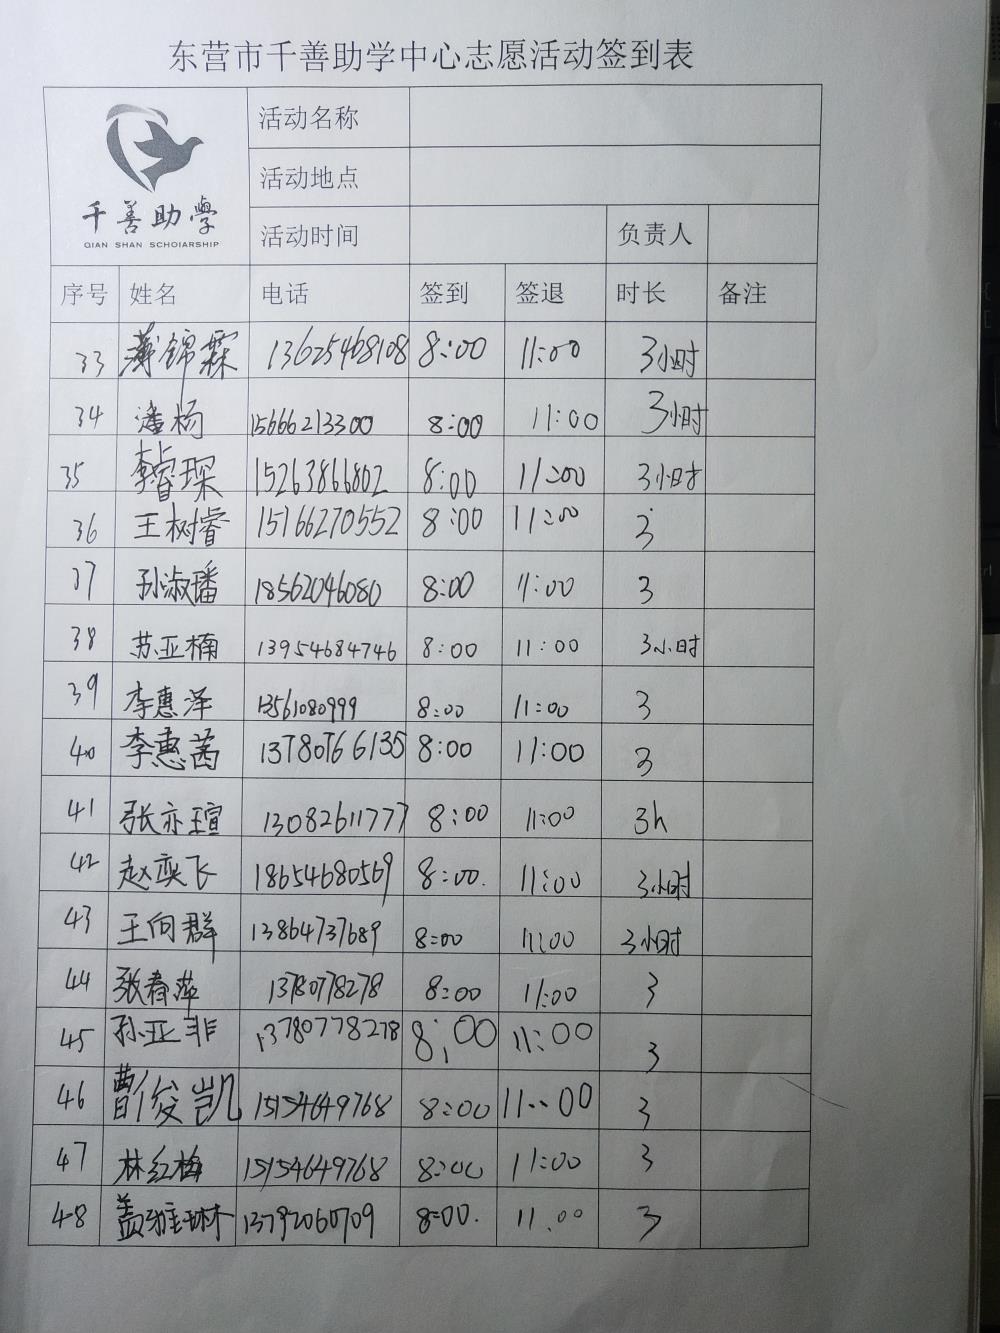 东营市千善助学中心志愿活动签到表
千善助学
QIAN SHAN SCHOIARSHIP
活动名称
活动地点
活动时间 负责人
序号 姓名 电话 签到 签退 时长 备注
33 薄锦霖 13625468108 8:00 11:00 3小时
34 潘杨 15666213300 8:00 11:00 3小时
35 李睿琛 15263866802 8:00 11:00 3小时
36 王树睿 15166270552 8:00 11:00 3
37 孙淑璠 18562046080 8:00 11:00 3
38 苏亚楠 13954684746 8:00 11:00 3小时
39 李惠泽 13561080999 8:00 11:00 3
40 李惠茜 13780766135 8:00 11:00 3
41 张亦瑄 13082611777 8:00 11:00 3h
42 赵奕飞 18654680569 8:00. 11:00 3小时
43 王向群 13864737689 8:00 11:00 3小时
44 张春萍 13780778278 8:00 11:00 3
45 孙亚非 13780778278 8:00 11:00 3
46 曹俊凯 15154649768 8:00 11:00 3
47 林红梅 15154649768 8:00 11:00 3
48 盖雅琳 13792060709 8:00. 11:00 3